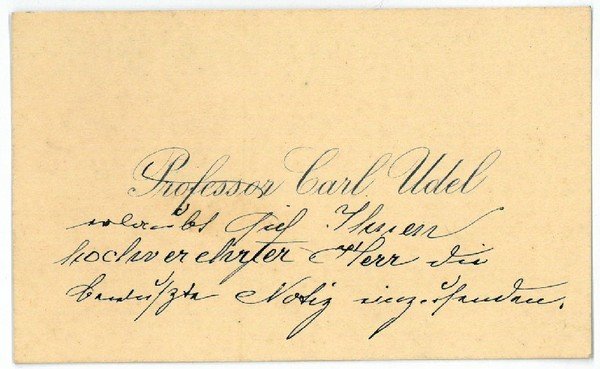 Professor Carl Udel
erlaubt sich Ihnen
hochverehrter Herr die
bewußte Notiz einzusenden.